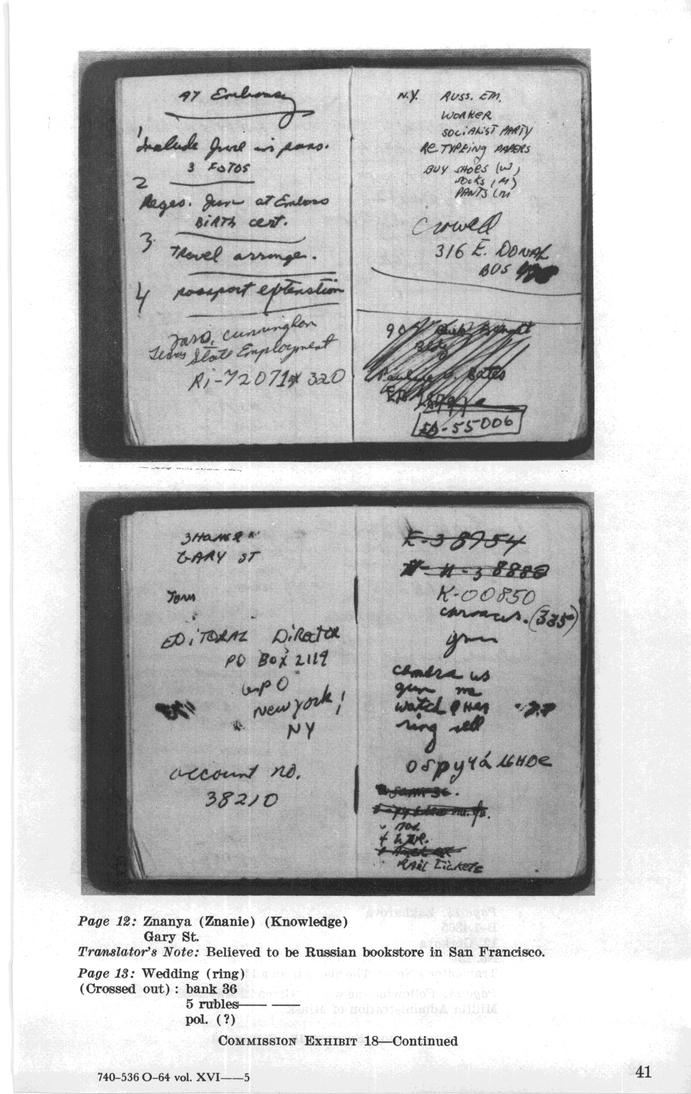 AT Embassy
1
Include June in pass.
3 FOTOS
2
Reges. June at Embass
BIRTH cert.
3
Travel arrange.
4 passport extenstion
cunningham
Texas State Employment
Ri-72071 x 320
N.Y. RUSS. EM.
WORKER
SOCIALIST PARTY
RE-TYPEING PAPERS
BUY SHOES (W)
SOCKS (M)
PANTS (M
Crowed
316 E. DONAL
BUS
Bldg
Pauline V. Bates
ED-55006
GARY ST
EDITORAL DIRECTOR
PO BOX 2119
G.P.O
New york!
NY
account no.
38210
E-38954
H-38888
K-00850
(335)
camera us
gun me
watch her
ring sell
RAIL TICKETS
Page 12: Znanya (Znanie) (Knowledge)
Gary St.
Translator's Note: Believed to be Russian bookstore in San Francisco.
Page 13: Wedding (ring)
(Crossed out) : bank 36
5 rubles—— ——
pol. (?)
COMMISSION EXHIBIT 18—Continued
740-536 O-64 vol. XVI——5
41